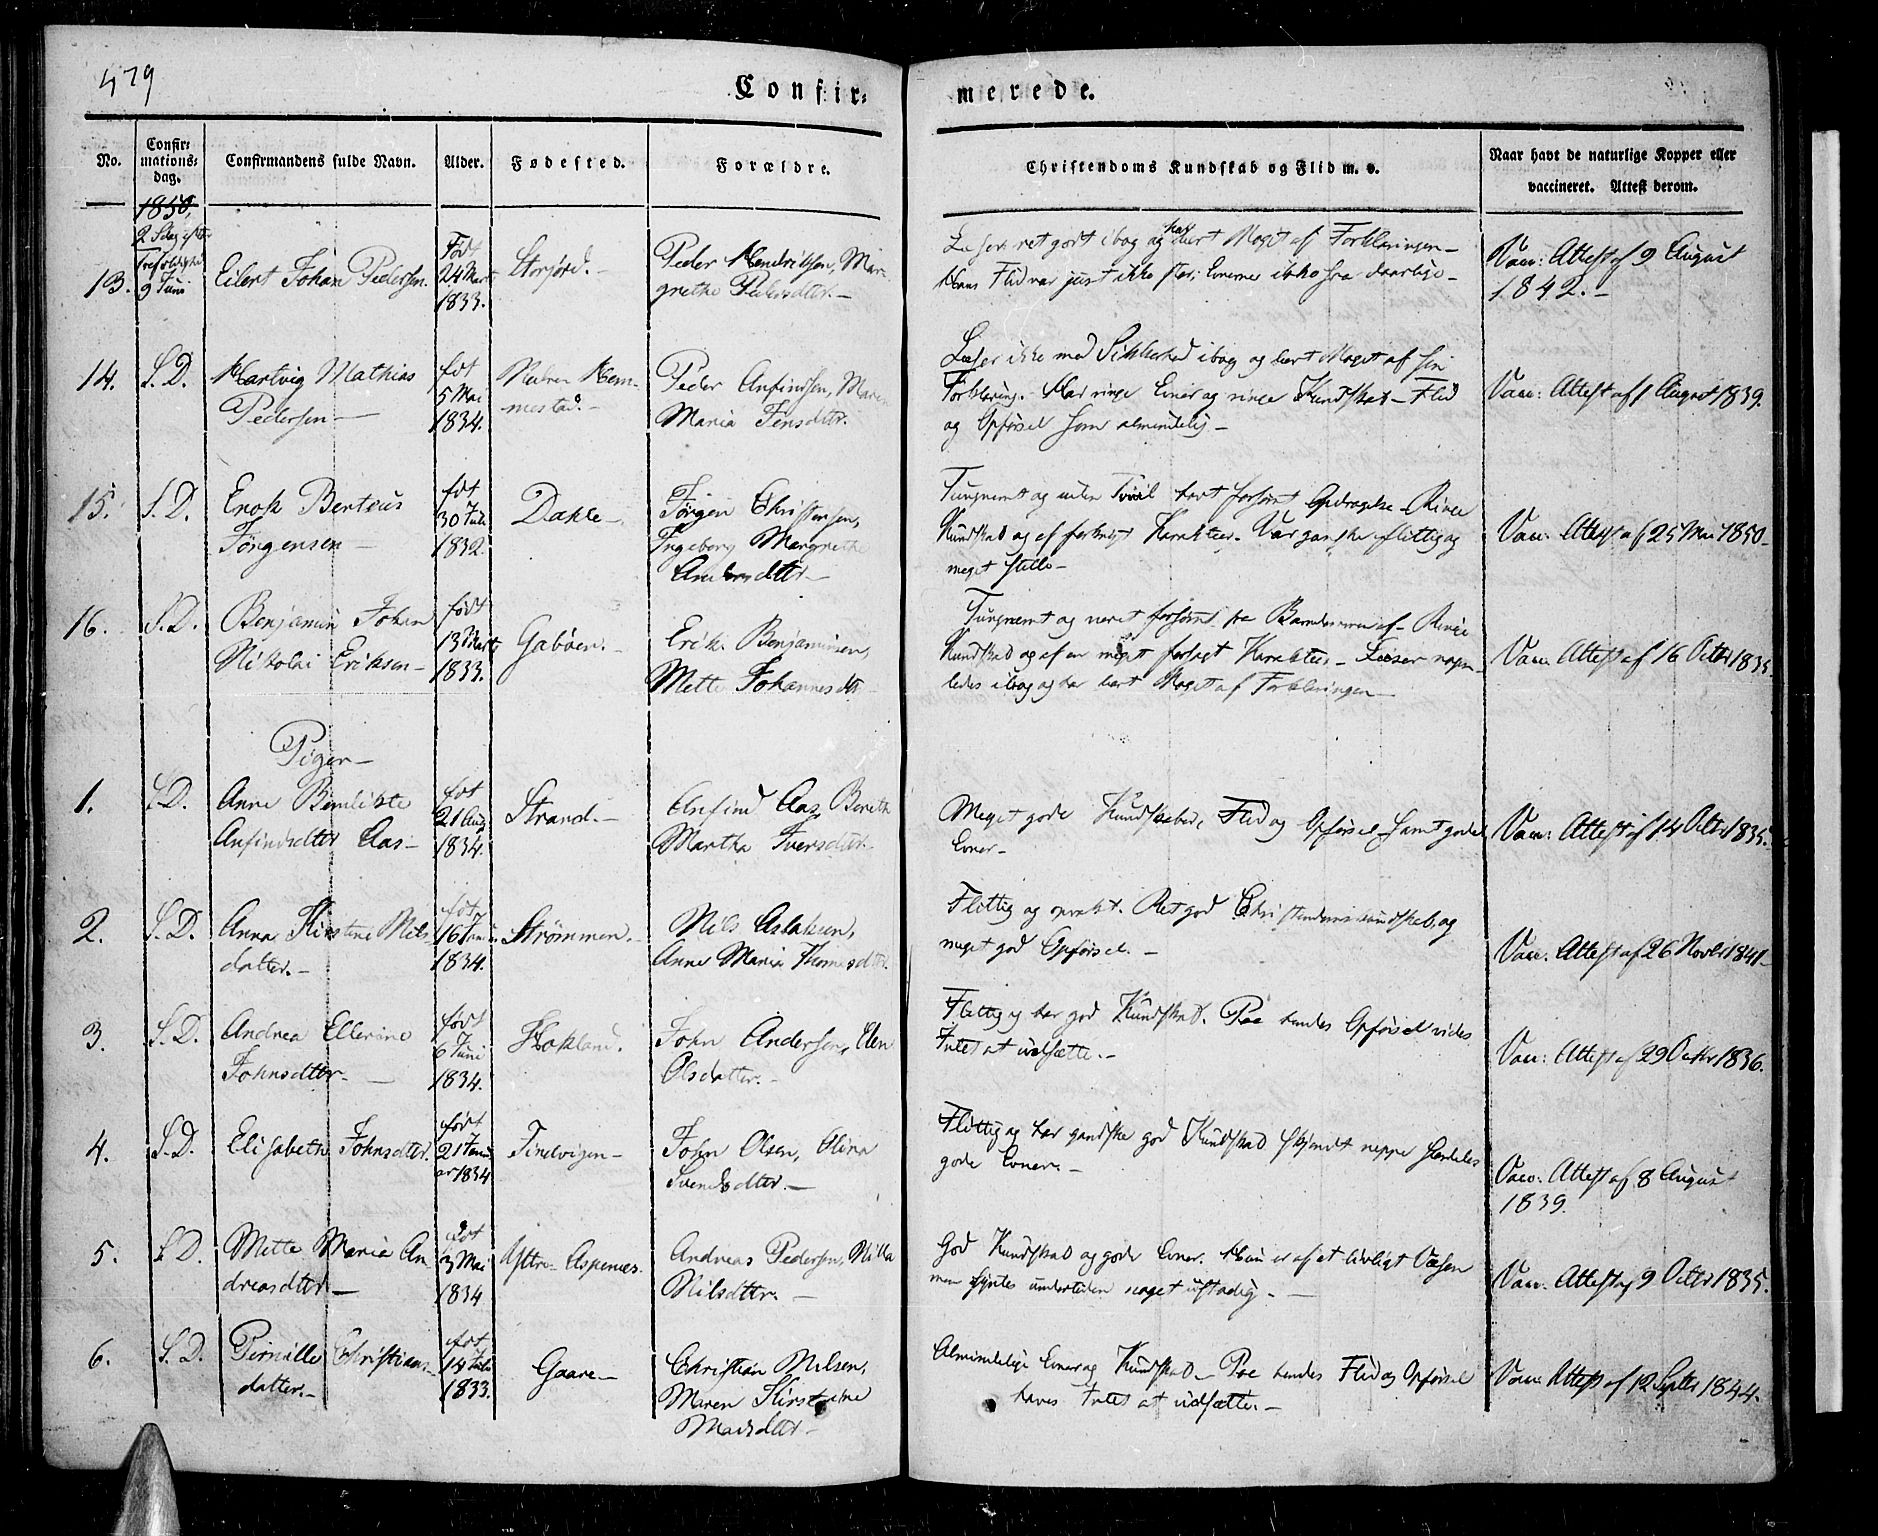 479
Confir=
merede.
No.
Confir=
mations=
dag.
Confirmandens fulde Navn.
Alder.
Fødested.
Forældre.
Christendoms Kundskab og Flid m. v.
Naar havt de naturlige Kopper eller
vaccineret. Attest derom.
1850,
2 Sdag efter
Trefoldigh
9 Juni
13.
Eilert Johan Pedersen.
Født
24 Mart
1833.
Storjord.-
Peder Hendriksen, Mar-
grethe Pedersdtr.-
Læser ret godt i bog og har lært Meget af Forklaringen-
Hans Flid var just ikke stor; Evnerne ikke saa daarlige-
Vacc: Attest af 9 August
1842.-
14.
S. D.
Hartvig Mathias
Pedersen-
født
5 Mai
1834.
Nedre Hem-
mestad.-
Peder Anfindsen, Maren
Maria Jensdttr.
Læser ikke med Sikkerhed i bog og lært Meget af sin
Forklaring. Har ringe Evner og ringe Kundskab- Flid
og Opførsel som almindelig-
Vacc: Attest af 1 August 1839.
15.
S. D.
Enok Benteus
Jörgensen-
født
30 Juli
1832
Dahle-
Jörgen Christensen,
Ingeborg Margrethe
Andersdttr-
Tungnemt og uden Tvivl havt forsømt Opdragelse- Ringe
Kundskab og af Karakteer. Var ganske flittig og
meget stille-
Vacc: Attest af 25 Mai 1850-
16.
S. D.
Benjamin Johan
Nikolai Eriksen-
født
13 Mart
1833.
Gaböen.-
Erik Benjaminsen,
Mette Johannesdtr
Tungnemt og været forsømt fra Barndommen af- Ringe
Kundskab og af en meget forsagt Karakteer- Læser nogen-
ledes i bog og har lært Meget af Forklaringen-
Vacc. Attest af 16 Octbr 1835.
Piger-
1.
S. D.
Anne Benedikte
Anfindsdtter Aas-
født
21 Aug
1834.
Strand.-
Anfind Aas, Bereth
Martha Iversdtter
Meget gode Kundskaber, Flid og Opførsel samt gode
Evner-
Vacc: Attest af 14 Octbr 1835.
2.
S. D.
Anna Kirstine Nils-
datter.-
født
16 Juni
1834.
Strömmen.-
Nils Aslaksen,
Anne Maria Thomasdtter.
Flittig og opvakt. Ret god Christendomskundskab, og
meget god Opførsel.-
Vacc. Attest af 26 Novbr 1841-
3.
S. D.
Andrea Ellerine
Johnsdtter.-
født
6 Juni
1834.
Hokland.
John Andersen, Elen
Olsdatter.-
Flittig og har god Kundskab. Paa hendes Opførsel vides
Intet at udsætte.-
Vacc: Attest af 29 Octbr 1836.
4.
S. D.
Elisabeth Johnsdtter.
født
21 Janu
ar 1834
Tindvigen-
John Olsen, Elina
Svendsdtter.-
Flittig og har gandske god Kundskab skjøndt neppe særdeles
gode Evner.-
Vacc. Attest af 8 August
1839.
5.
S. D.
Mette Maria An-
dreasdtter-
født
3 Mai
1834
Yttre Aspenæs.
Andreas Pedersen, Nilla
Nilsdtter.-
God Kundskab og gode Evner. Hun er af et livligt Væsen
men synes undertiden noget ustadig.-
Vacc. Attest af 9 Octbr 1835.
6.
S. D.
Pernille Christians-
datter.-
født
14 Juli
1833.
Gaare-
Christian Nilsen,
Maren Kirstine
Madsdtter-
Almindelige Evner og Kundskab- Paa hendes Flid og Opførsel
haves Intet at udsætte.-
Vacc. Attest af 12 Septbr 1844.